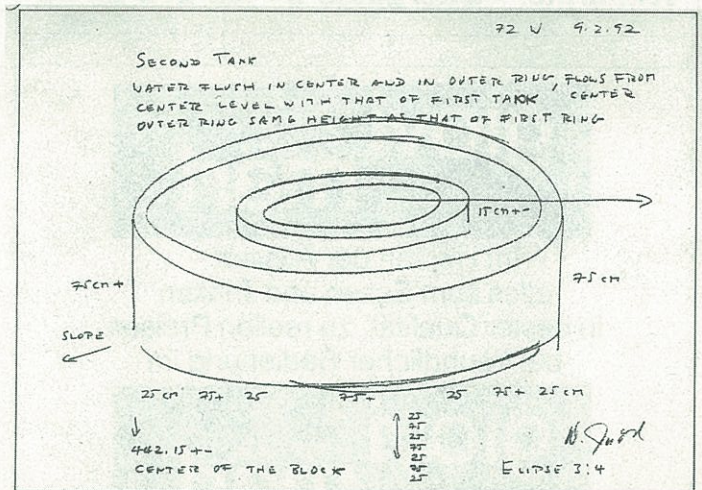 72 W 9.2.92
SECOND TANK
WATER FLUSH IN CENTER AND IN OUTER RING, FLOWS FROM CENTER
CENTER LEVEL WITH THAT OF FIRST TANK
OUTER RING SAME HEIGHT AS THAT OF FIRST RING
15 CM +-
75 CM +
75 CM
SLOPE
25 CM 75+ 25 75+ 25 75+ 25 CM
25
75
25
75
25
75
25
442.15 +-
CENTER OF THE BLOCK
D. Judd
ELIPSE 3:4